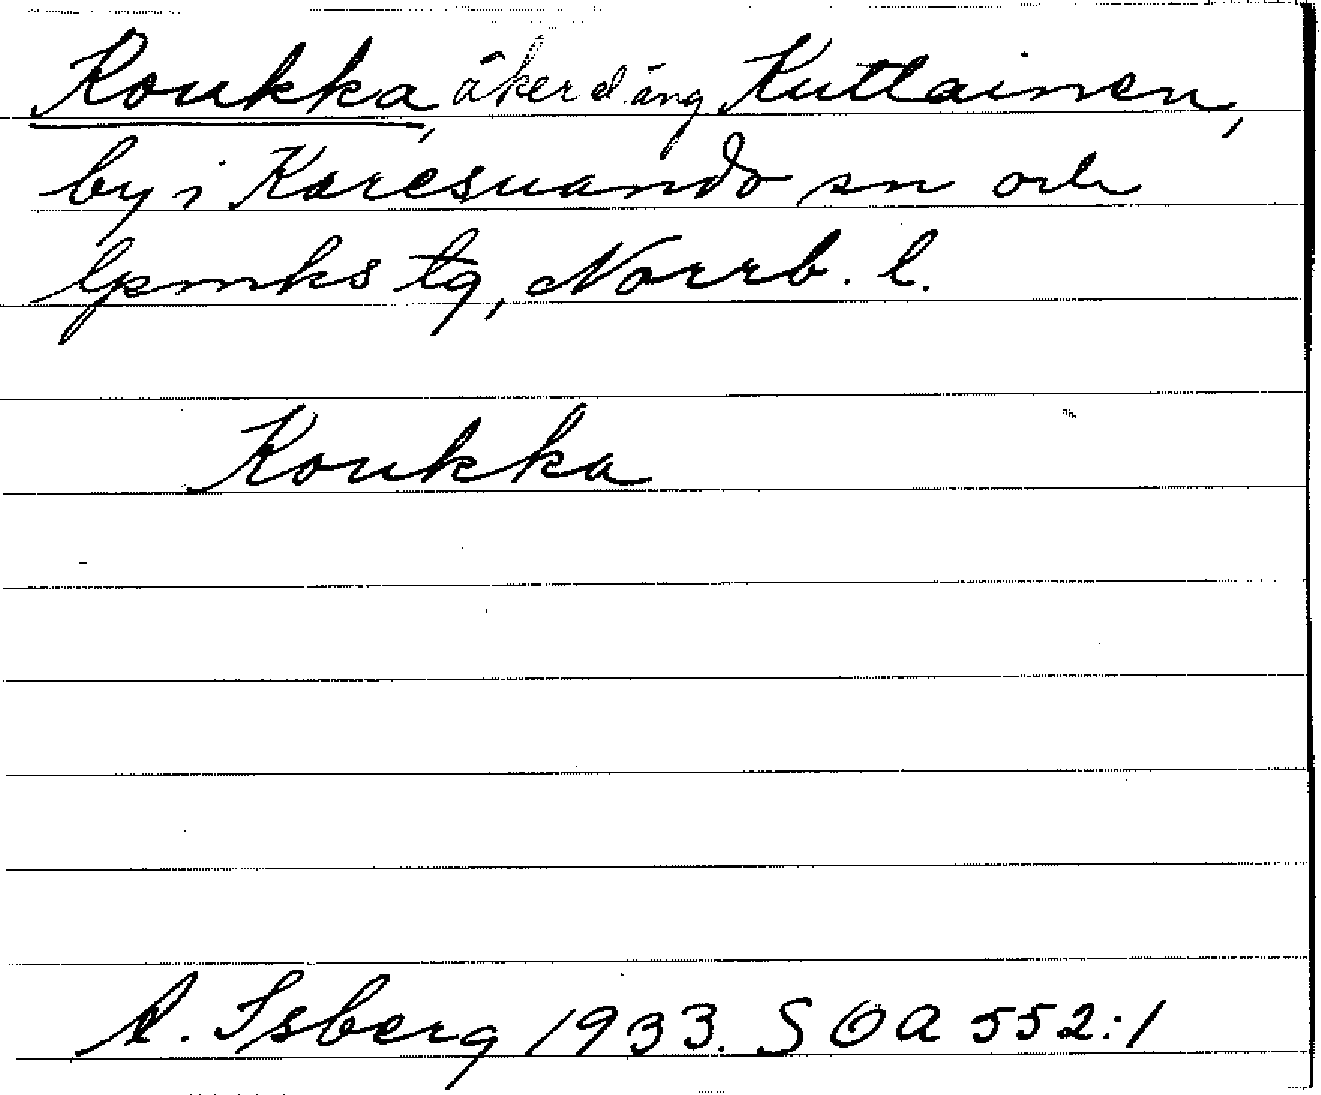 Koukka, åker el äng Kuttainen,
by i Karesuando sn och
lpmks tg, Norrb. l.
Koukka
A. Isberg 1933. SOA 552:1